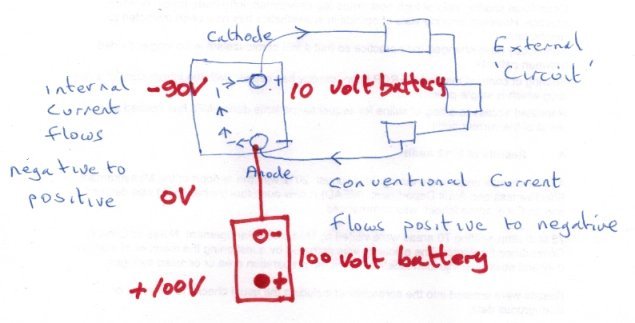 Cathode
External
'Circuit'
Internal
Current
flows
negative to
positive
-90V
+
10 volt battery
-
Anode
0V
Conventional Current
Flows positive to negative
-
100 volt battery
+100V
+